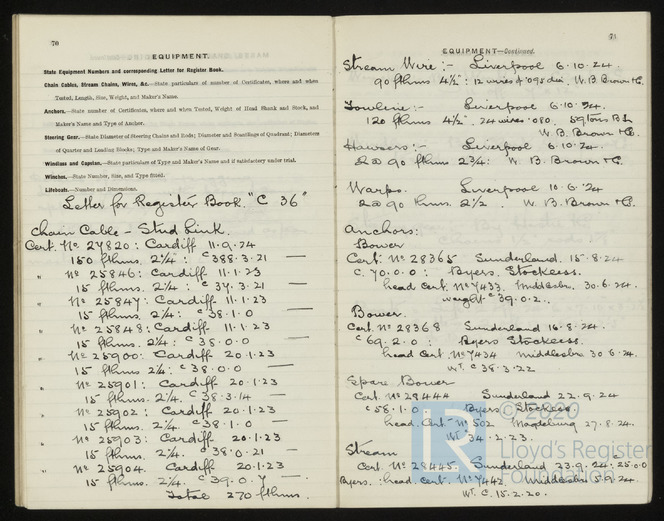 70
EQUIPMENT.
State Equipment Numbers and corresponding Letter for Register Book.
Chain Cables, Stream Chains, Wires, &c.—State particulars of number of Certificates, where and when
Tested, Length, Size, Weight, and Maker's Name.
Anchors.—State number of Certificates, where and when Tested, Weight of Head Shank and Stock, and
Maker's Name and Type of Anchor.
Steering Gear.—State Diameter of Steering Chains and Rods; Diameter and Scantlings of Quadrant; Diameters
of Quarter and Leading Blocks; Type and Maker's Name of Gear.
Windlass and Capstan.—State particulars of Type and Maker's Name and if satisfactory under trial.
Winches.—State Number, Size, and Type fitted.
Lifeboats.—Number and Dimensions.
Letter for Register Book "C 36"
Chain Cable - Stud Link.
Cert. No 27820: Cardiff 11.9.24
150 fthms. 2¼: c 388.3.21
" No 25846: Cardiff 11.1.23
15 fthms. 2¼: c 37.3.21
" No 25847: Cardiff 11.1.23
15 fthms. 2¼: c 38.1.0
" No 25848: Cardiff 11.1.23
15 fthms. 2¼: c 38.0.0
" No 25900: Cardiff 20.1.23
15 fthms. 2¼: c 38.0.0
" No 25901: Cardiff 20.1.23
15 fthms. 2¼. c 38.3.14
" No 25902: Cardiff 20.1.23
15 fthms. 2¼. c 38.1.0
" No 25903: Cardiff 20.1.23
15 fthms. 2¼. c 38.0.21
" No 25904. Cardiff 20.1.23
15 fthms. 2¼. c 39.0.7
Total 270 fthms.
71
EQUIPMENT—Continued.
Stream Wire:- Liverpool 6.10.24
90 fthms 4½": 12 wires of .095 dia. W.B. Brown & Co.
Towline:- Liverpool 6.10.24.
120 fthms 4½". 24 wires .080. 59 tons
W.B. Brown & Co.
Hawsers:- Liverpool 6.10.24.
2 @ 90 fthms 2¾: W.B. Brown & Co.
Warps. Liverpool 10.6.24
2 @ 90 fthms. 2½. W.B. Brown & Co.
Anchors:
Bower
Cert. No 28365 Sunderland. 15.8.24
C. 70.0.0: Byers. Stockless.
head Cert. No 7433. Middlesbro. 30.6.24.
weight c 39.0.2.
Bower.
Cert. No 28368 Sunderland 16.8.24.
c 69.2.0: Byers Stockless.
head Cert No 7434 Middlesbro 30.6.24.
WT. c 38.3.22
Spare Bower
Cert. No 28444 Sunderland 22.9.24
c 58.1.0 Byers Stockless.
head Cert. No 502 27.8.24.
WT c 34.2.23.
Stream
Cert. No 28445 Sunderland 23.9.24: 25.0.0
Byers. head Cert. No 7442. Middlesbro 5.9.24.
WT. C. 15.2.20.
© 2020
LR
Lloyd's Register
Foundation